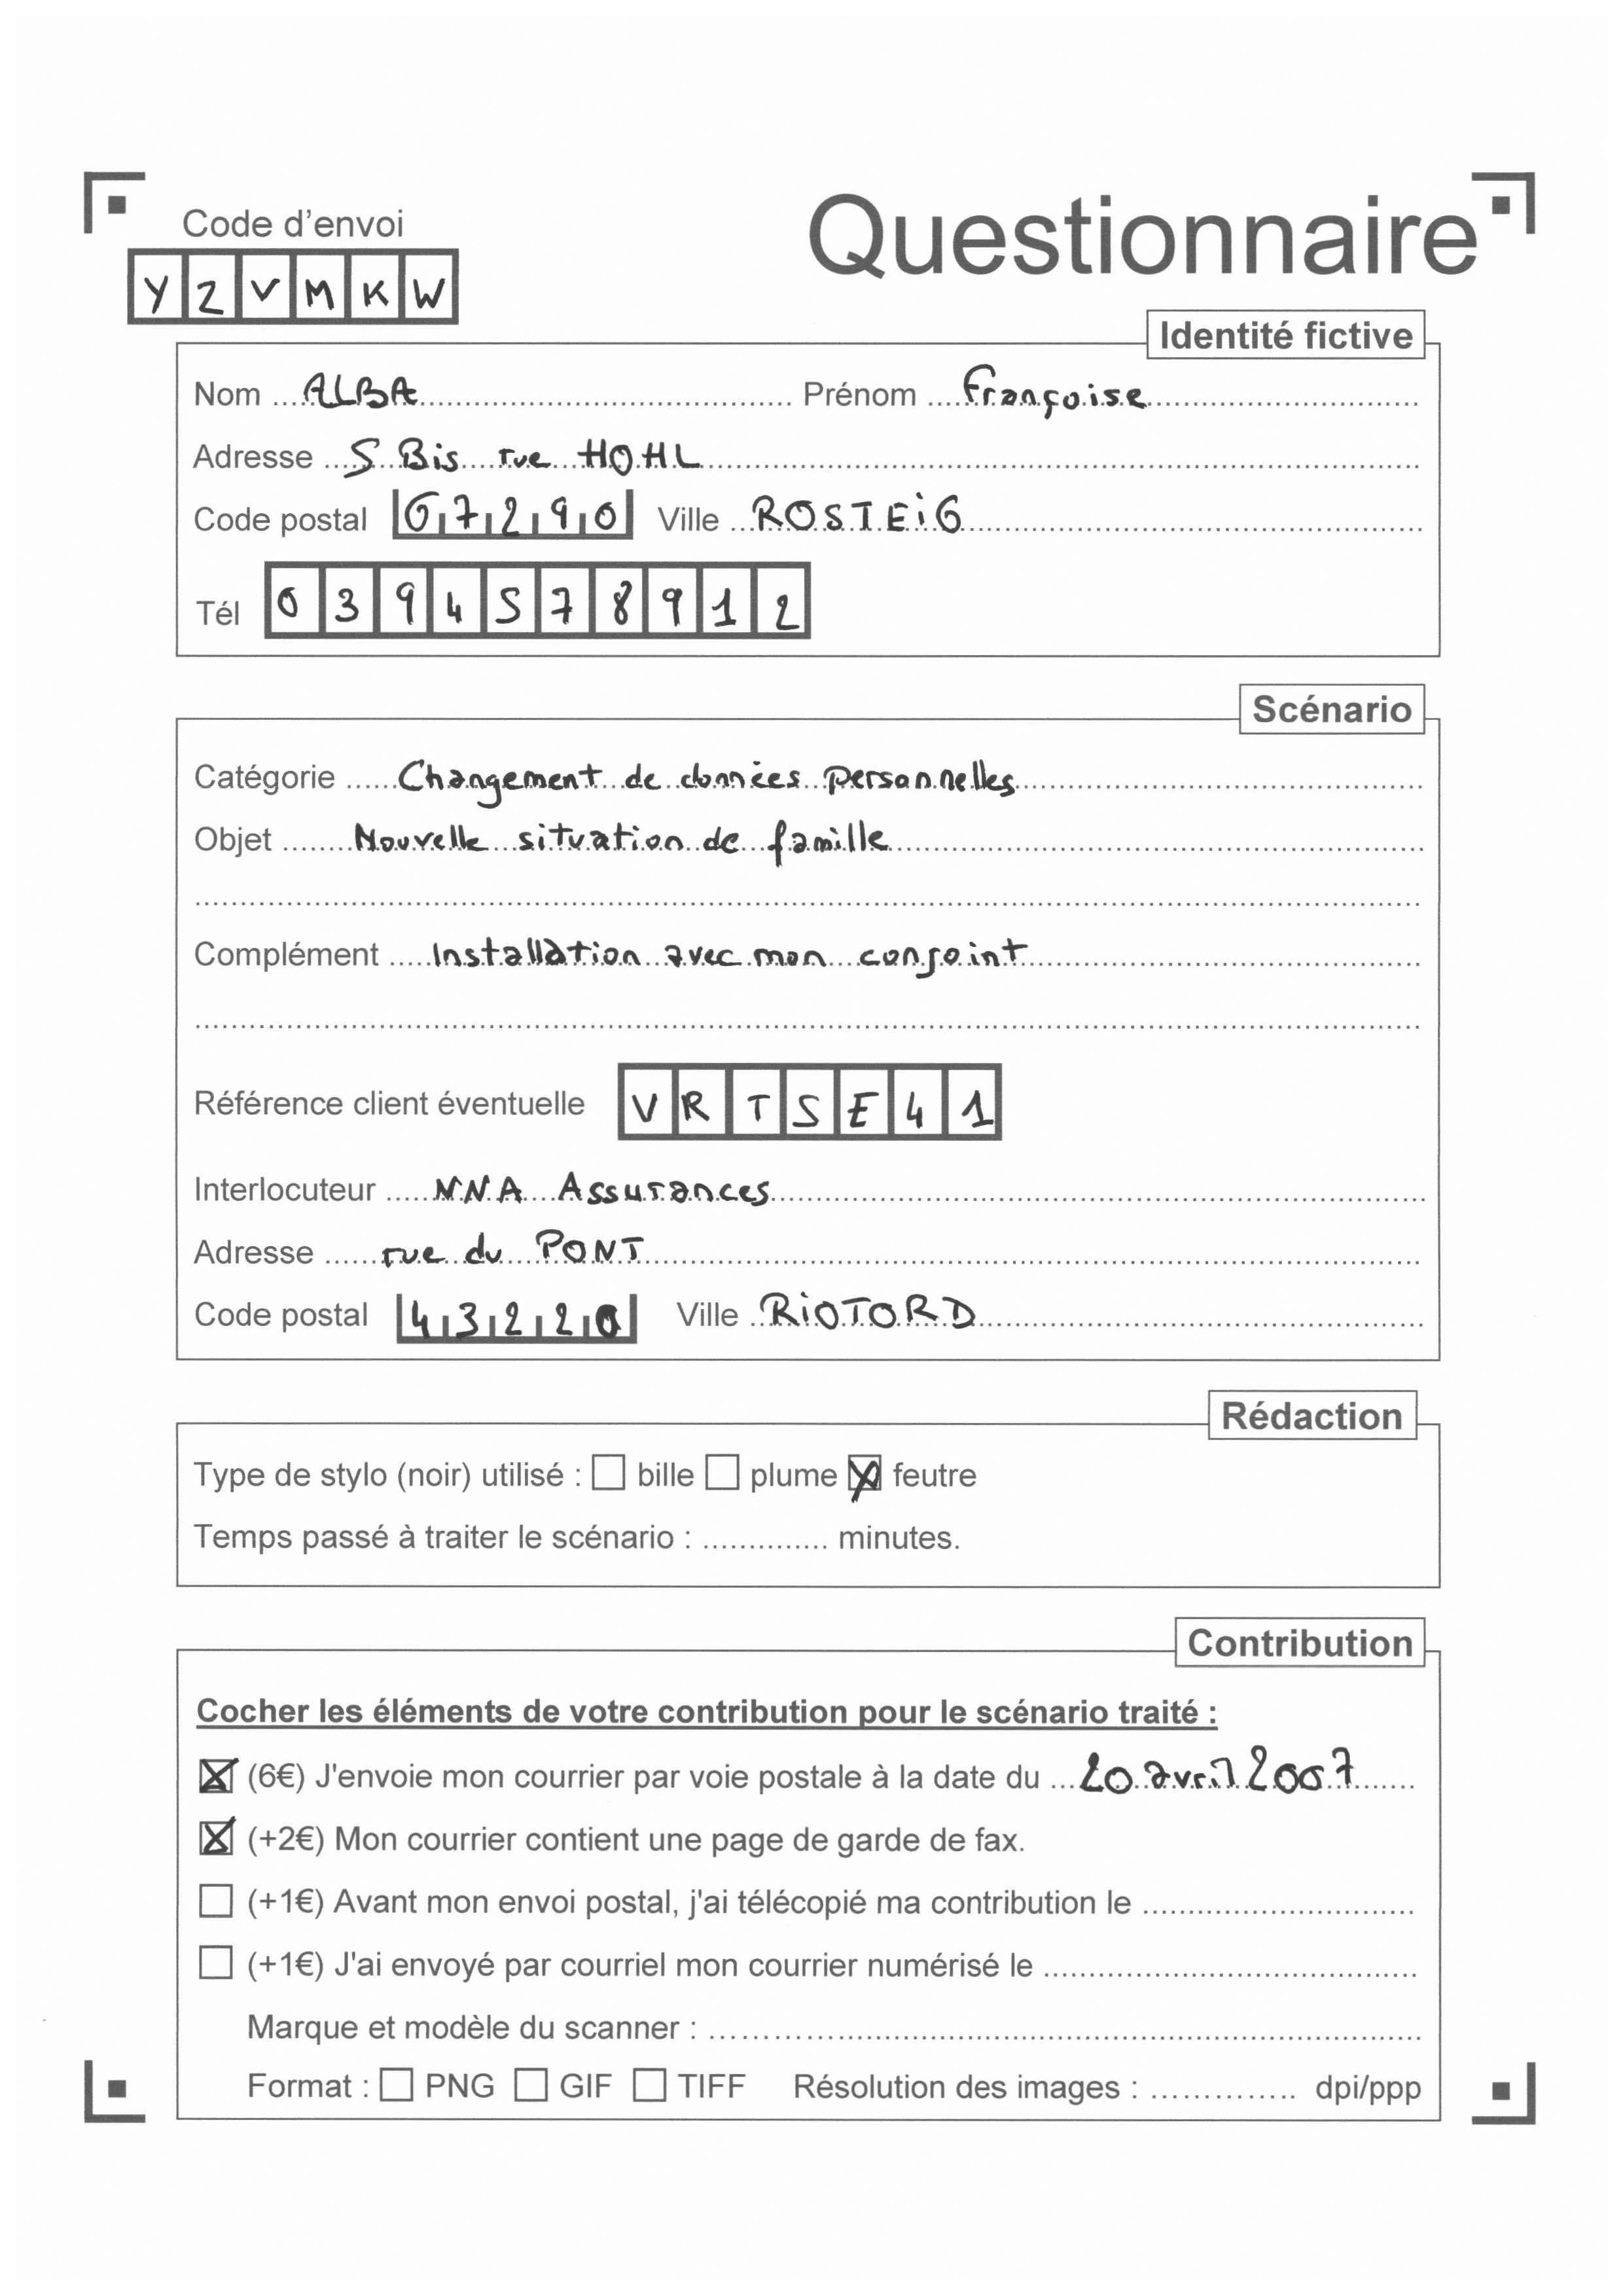 Code d'envoi
Questionnaire
Y Z V M K W
Identité fictive
Nom ALBA Prénom Françoise
Adresse 5 Bis rue HOHL
Code postal 67290 Ville ROSTEiG
Tél 0394578912
Scénario
Catégorie Changement de données personnelles
Objet Nouvelle situation de famille
Complément Installation avec mon conjoint
Référence client éventuelle VRTSE41
Interlocuteur NNA Assurances
Adresse rue du PONT
Code postal 43220 Ville RiOTORD
Rédaction
Type de stylo (noir) utilisé : ☐ bille ☐ plume ☒ feutre
Temps passé à traiter le scénario : .............. minutes.
Contribution
Cocher les éléments de votre contribution pour le scénario traité :
☒ (6€) J'envoie mon courrier par voie postale à la date du 20 avril 2007
☒ (+2€) Mon courrier contient une page de garde de fax.
☐ (+1€) Avant mon envoi postal, j'ai télécopié ma contribution le
☐ (+1€) J'ai envoyé par courriel mon courrier numérisé le
Marque et modèle du scanner :
Format : ☐ PNG ☐ GIF ☐ TIFF Résolution des images : .............. dpi/ppp